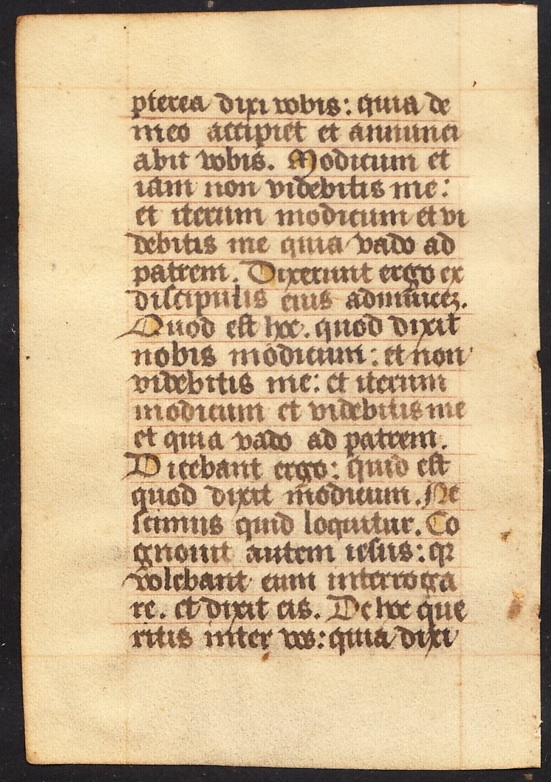 pterea dixi vobis: quia de
meo accipiet et annunci
abit vobis. Modicum et
iam non videbitis me:
et iterum modicum et vi
debitis me quia vado ad
patrem. Dixerunt ergo ex
discipulis eius adinvicez.
Quod est hoc. quod dixit
nobis modicum: et non
videbitis me: et iterum
modicum et videbitis me
et quia vado ad patrem.
Dicebant ergo: quid est
quod dixit modicum. Ne
scimus quid loquitur. Co
gnovit autem iesus: qz
volebant eum interroga
re. et dixit eis. De hoc que
ritis inter vos: quia dixi